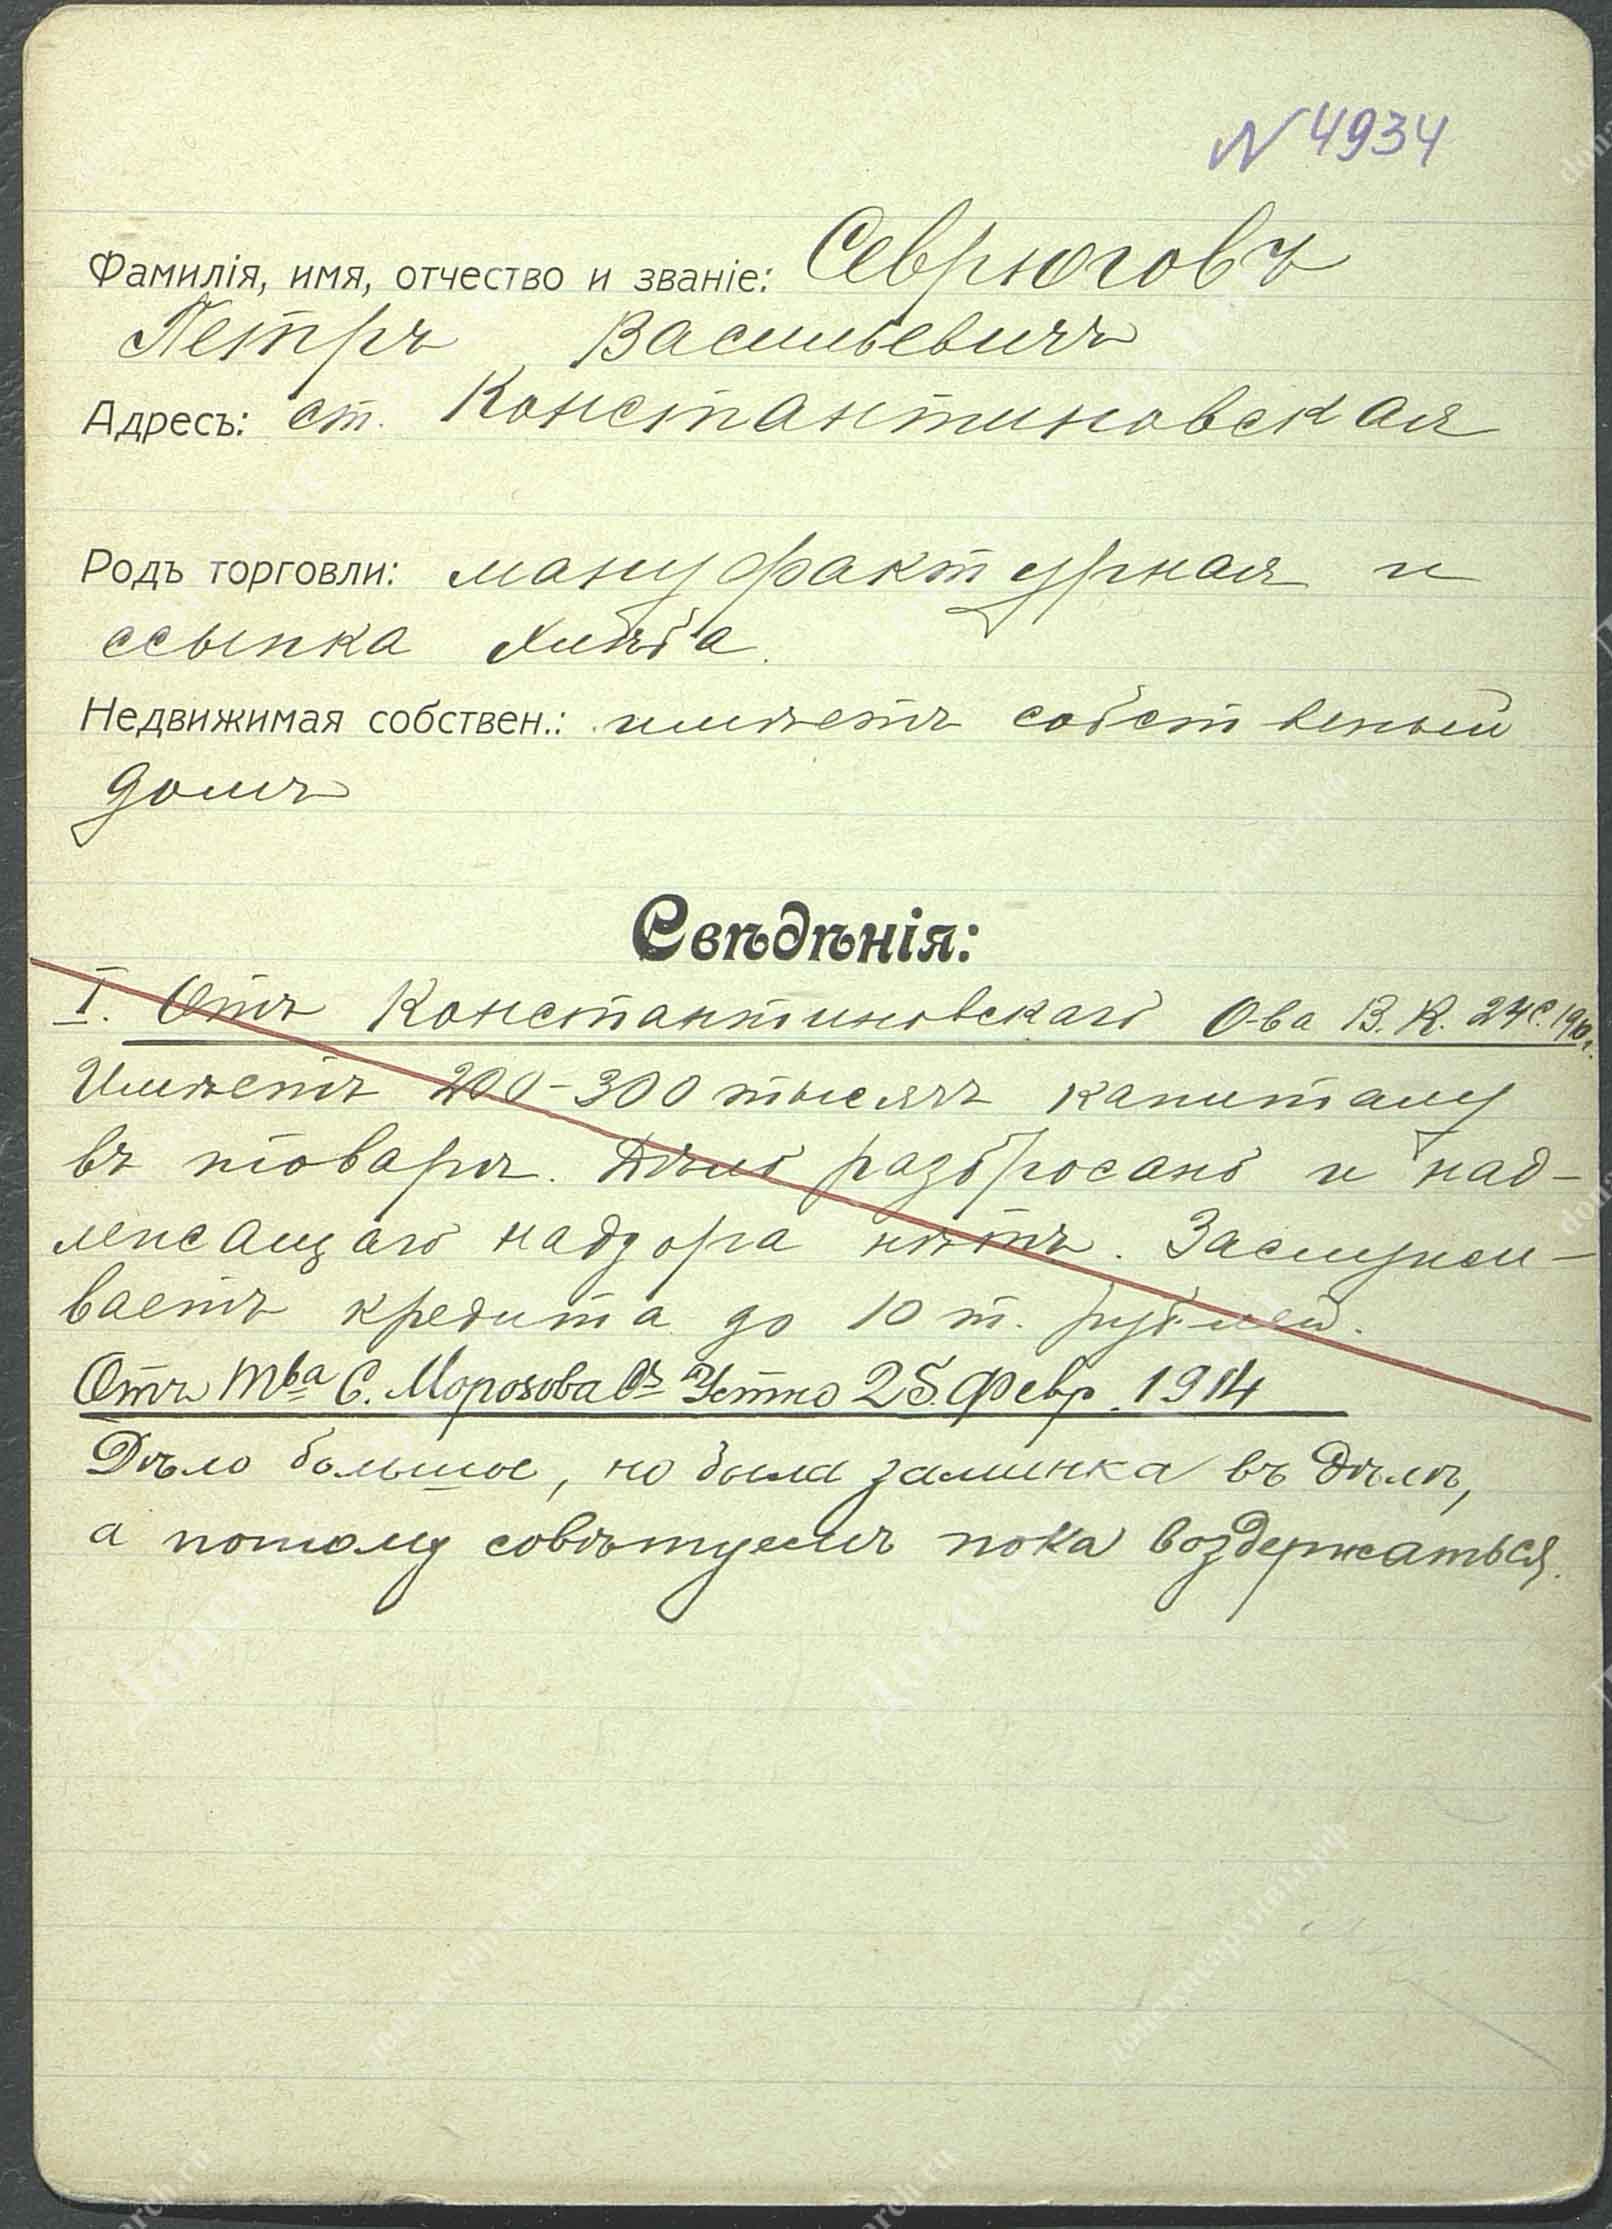 N 4934
Фамилія, имя, отчество и званіе: Севрюговъ
Петръ Васильевичъ
Адресъ: ст. Константиновская
Родъ торговли: мануфактурная и
ссыпка хлѣба.
Недвижимая собствен.: имѣетъ собственый
домъ
Свѣдѣнія:
I. Отъ Константиновскаго О-ва В. К. 24 с. 1910 г.
Имѣетъ 200-300 тысячъ капиталу
въ товарѣ. Дѣло разбросано и над-
лежащаго надзора нѣтъ. Заслужи-
ваетъ кредита до 10 т. рублей.
Отъ Тва С. Морозова Съ Устно 25 Февр. 1914
Дѣло большое, но была заминка въ дѣлѣ,
а потому совѣтуемъ пока воздержаться.